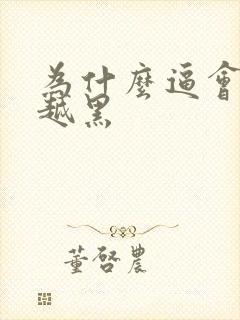 為什麼逼會
越黑
董啓農